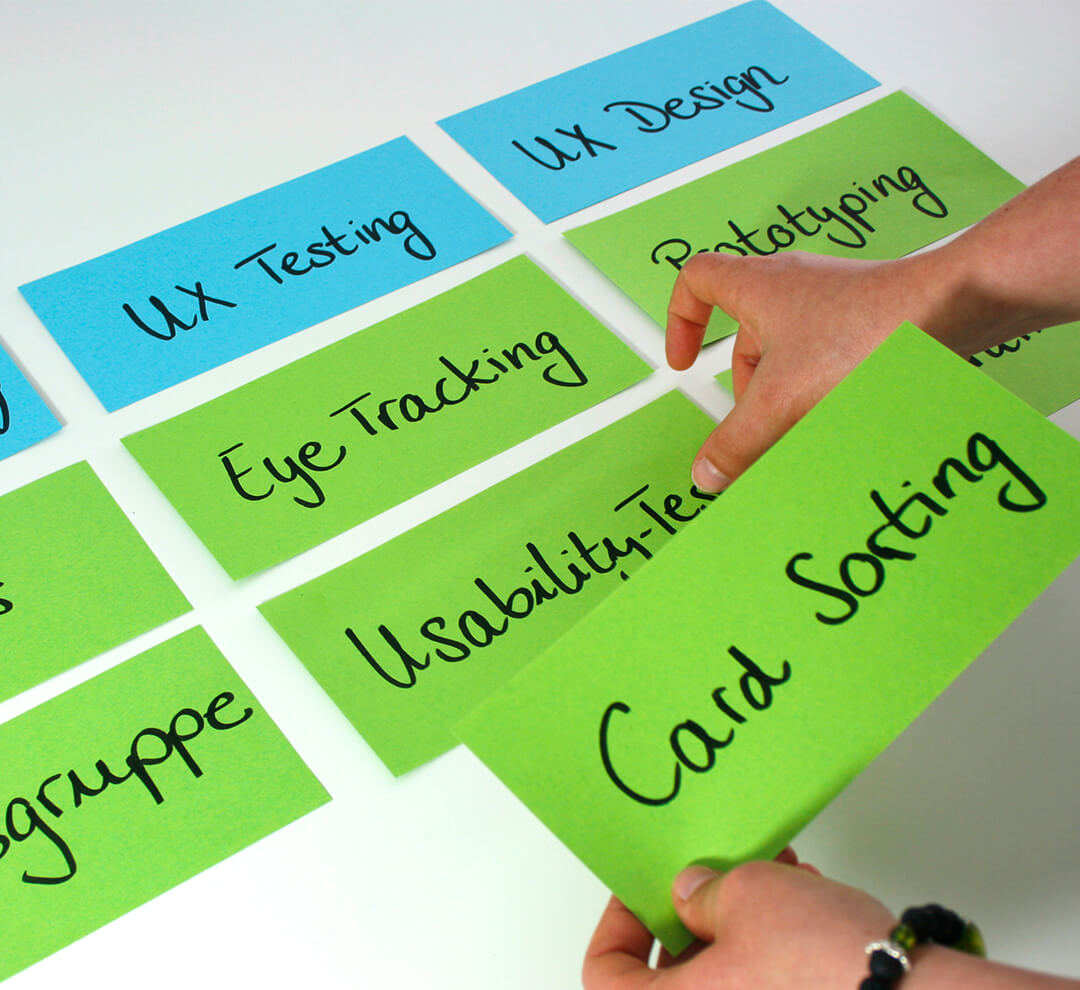 UX Design
UX Testing
Prototyping
Eye Tracking
Usability-Tes
Card Sorting
sgruppe